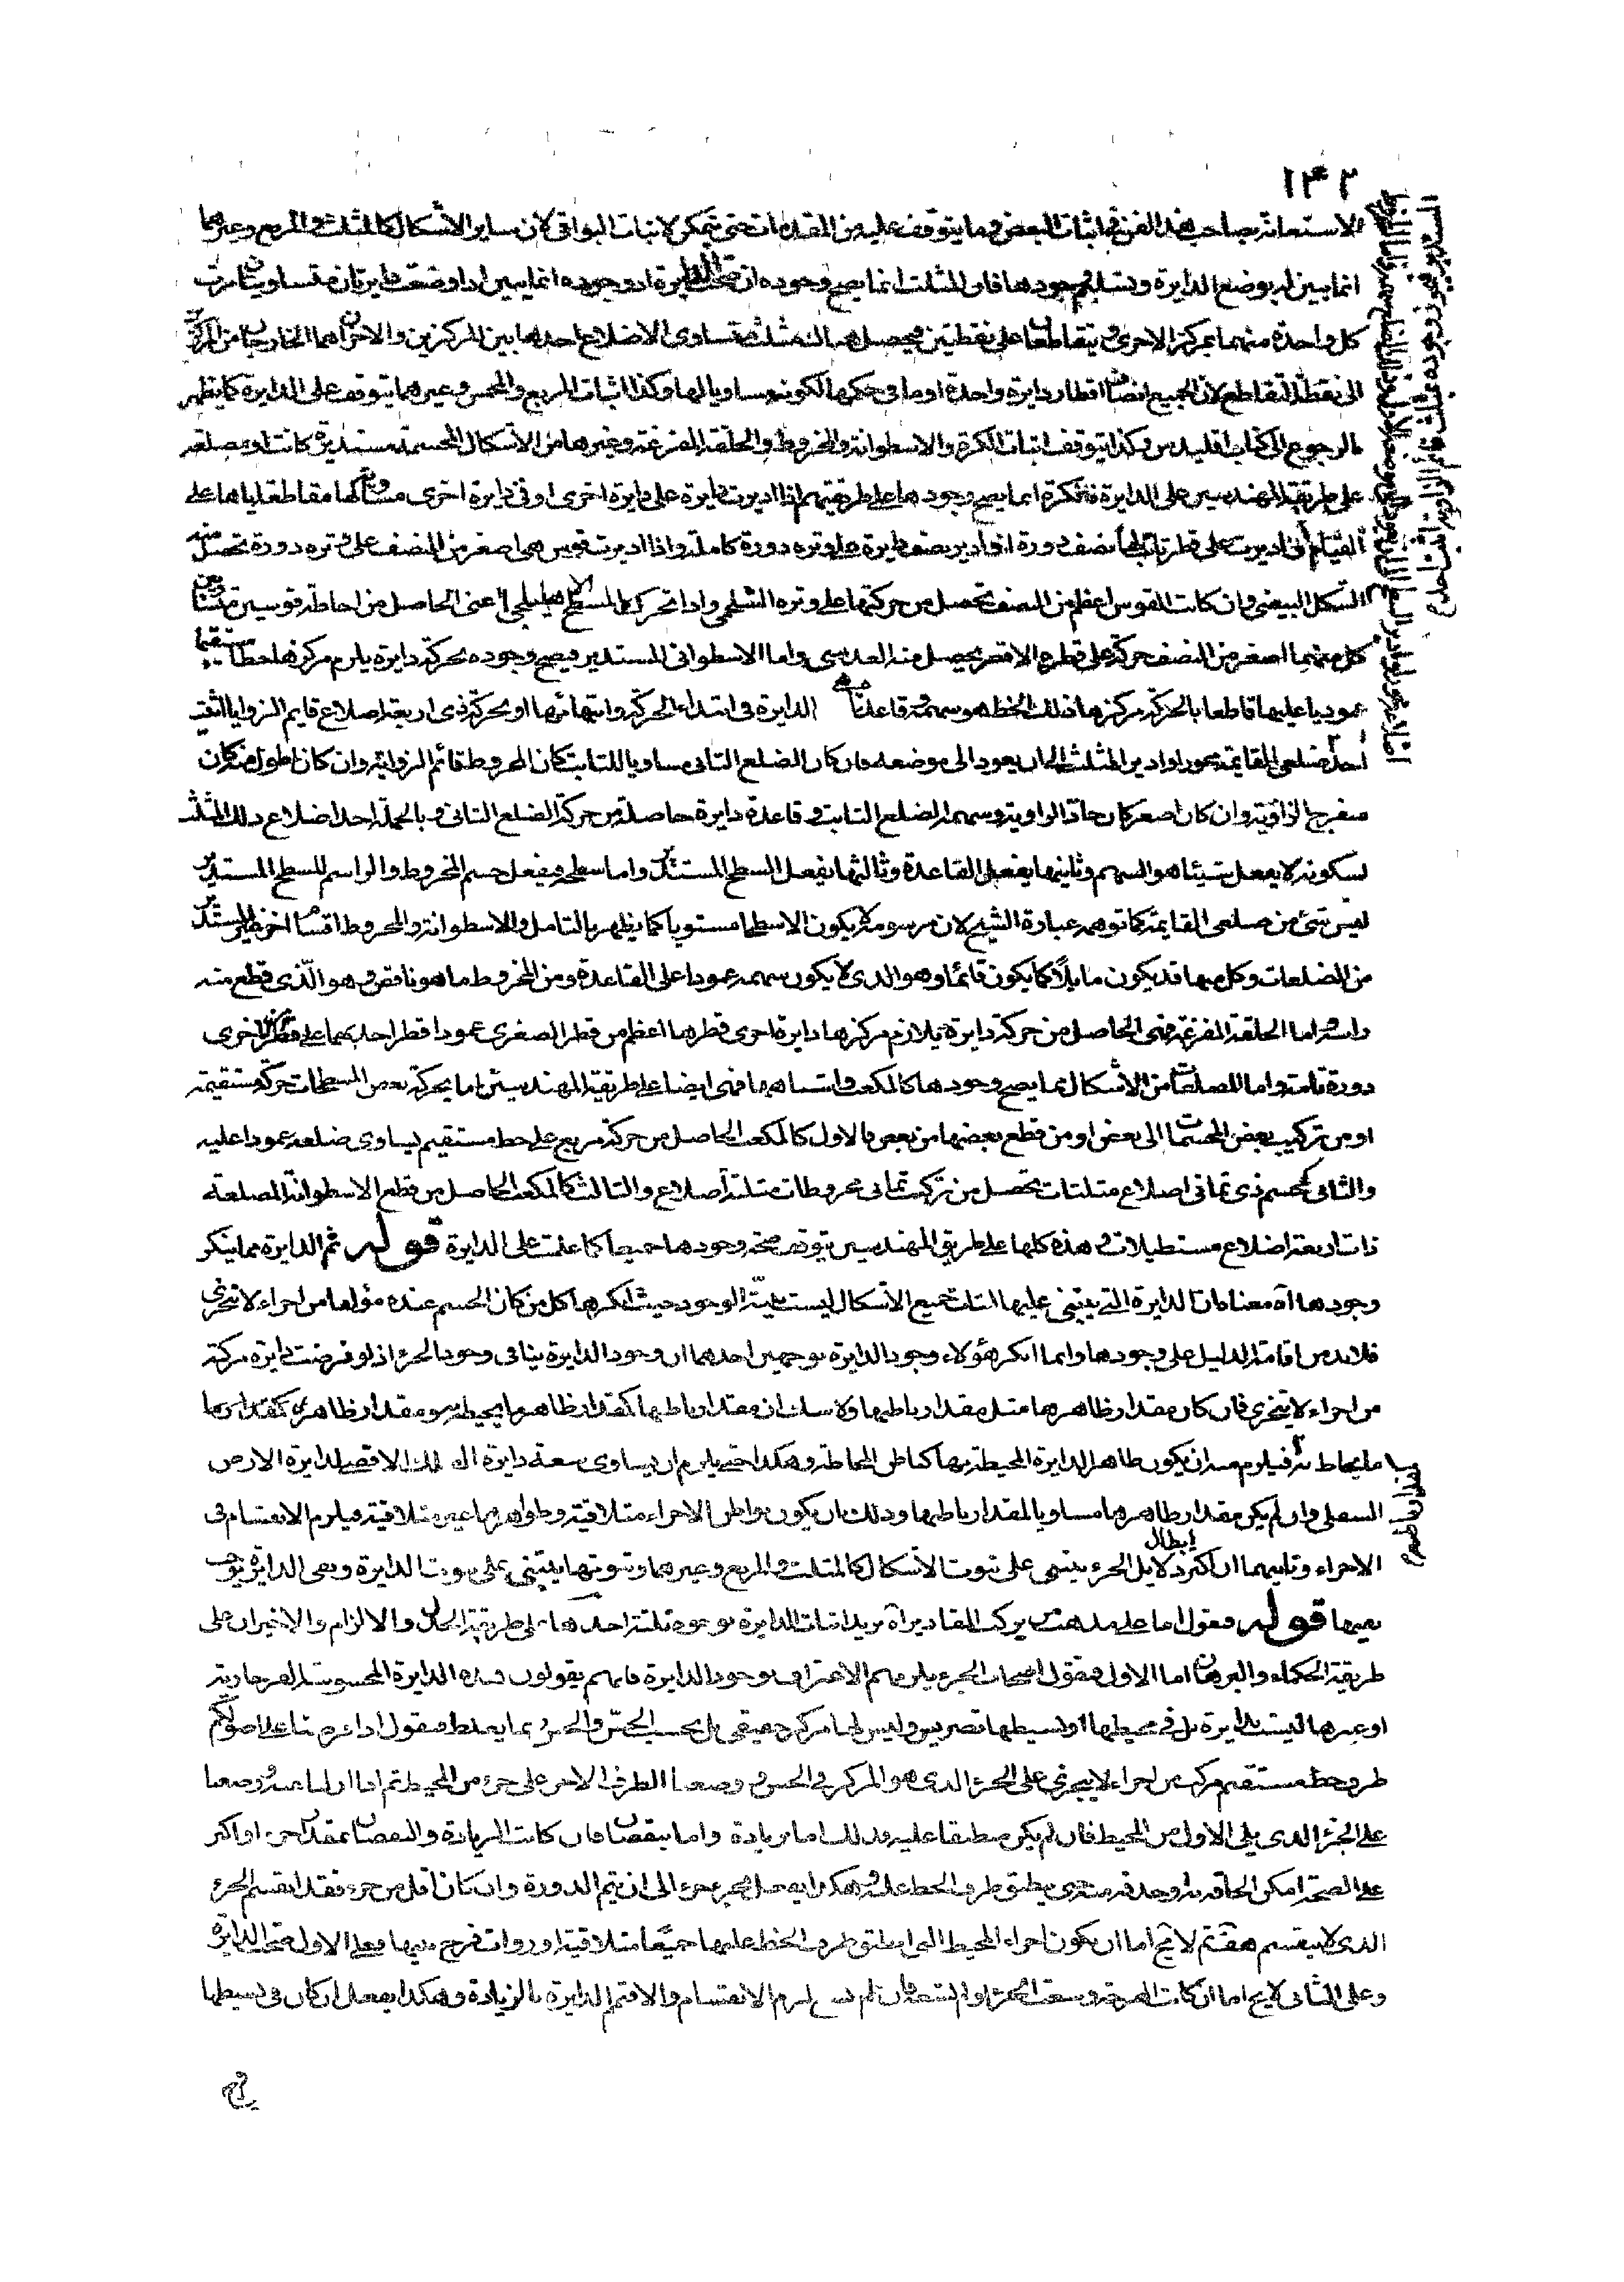 ١٣٢
الاستعانة بصاحب هذا الفن في اثبات البعض وما يتوقف عليه من المقدمات حتى يتمكن لاثبات البواقي لان ساير الاشكال كالمثلث والمربع وغيرهما
انما يبين له بوضع الدايرة وتسليم وجودها فان المثلث انما يصح وجوده ان صحت الدايرة اذ وجوده انما يبين اذا وضعت دايرتان متساويتان مرت
كل واحدة منهما بمركز الاخرى و يتقاطعا على نقطتين فيحصل هناك مثلث متساوى الاضلاع احدها بين المركزين والاخران هما الخارجان من المركزين
الى نقطة التقاطع لان الجميع انصاف اقطار دايرة واحدة او ما فى حكمها لكونه مساويا لها وكذا اثبات المربع والمخمس وغيرهما يتوقف على الدايرة كما يظهر
بالرجوع الى كتاب اقليدس وكذا يتوقف اثبات الكرة والاسطوانة والمخروط والحلقة المفرغة وغيرها من الاشكال المجسمة مستديرة كانت او مضلعة
على طريقة المهندسين على الدايرة فالكرة انما يصح وجودها على طريقتهم اذا اديرت دايرة على دايرة اخرى او فى دايرة اخرى مساوية لها مقاطعة اياها على
القيام او اديرت على قطر ثابت لها نصف دورة او ادير نصف دايرة على وتره دورة كاملة واذا اديرت قوس هى اصغر من النصف على وتره دورة تحصل منه
الشكل البيضى وان كانت القوس اعظم من النصف تحصل من حركتها على وتره الشلجمى واذا تحرك المسطح الاهليلجى اعنى الحاصل من احاطة قوسين متساويتين
كل منهما اصغر من النصف حركة على قطره الاقصر يحصل منه العدسى واما الاسطوانى المستدير فيصح وجوده بحركة دايرة يلزم مركزها خطا مستقيما
عموديا عليها قاطعا بالحركة مركزها ذلك الخط هو سهمه وقاعدتاه الدايرة فى ابتداء الحركة وانتهائها او بحركة ذى اربعة اضلاع قايم الزوايا اثبت
احد ضلعى القايمة محورا وادير المثلث الى ان يعود الى موضعه فان كان الضلع الثانى مساويا للثابت كان المخروط قائم الزاوية وان كان اطول منه كان
منفرج الزاوية وان كان اصغر كان حاد الزاوية وسهمه الضلع الثابت وقاعدته دايرة حاصلة من حركة الضلع الثانى وبالجملة احد اضلاع ذلك المثلث
لسكونه لا يفعل شيئا هو السهم وثانيها يفعل القاعدة وثالثها يفعل السطح المستدير واما سطحه فيفعل جسم المخروط والراسم للسطح المستدير
ليس شئ من ضلعى القايمة كما توهمه عبارة الشيخ لان مرسومه لا يكون الا سطحا مستويا كما يظهر بالتامل وللاسطوانة والمخروط اقسام اخر غير المستدير
من المضلعات وكل منها قد يكون مايلا كما يكون قائما وهو الذى لا يكون سهمه عمودا على القاعدة ومن المخروط ما هو ناقص وهو الذى قطع منه
راسه واما الحلقة المفرغة فهى الحاصل من حركة دايرة يلازم مركزها دايرة اخرى قطرها اعظم من قطر الصغرى عمودا قطر احدهما على قطر الاخرى
دورة تامة واما المضلعات من الاشكال انما يصح وجودها كالمكعب واشباهها فهى ايضا على طريقة المهندسين اما بحركة بعض المسطحات حركة مستقيمة
او من تركيب بعض المجسمات الى بعض او من قطع بعضها من بعض فالاول كالمكعب الحاصل من حركة مربع على خط مستقيم يساوى ضلعه عمودا عليه
والثانى كمجسم ذى ثمانى اضلاع مثلثات تحصل من تركيب ثمانى مخروطات مثلثة اضلاع والثالث كالمكعب الحاصل من قطع الاسطوانة المضلعة
ذات اربعة اضلاع مستطيلات وهذه كلها على طريق المهندسين يتوقف صحة وجودها جميعا كما علمت على الدايرة قوله ثم الدايرة مما ينكر
وجودها اه معناه ان الدايرة التى يبتنى عليها اثبات جميع الاشكال ليست بينة الوجود حيث انكرها كل من كان الجسم عنده مؤلفا من اجزاء لا تتجزى
فلابد من اقامة الدليل على وجودها وانما انكر هؤلاء وجود الدايرة بوجهين احدهما ان وجود الدايرة ينافى وجود الجزء اذ لو فرضت دايرة مركبة
من اجزاء لا يتجزى فان كان مقدار ظاهرها مثل مقدار باطنها ولا شك ان مقدار باطنها كمقدار ظاهر ما يحيط به ومقدار ظاهرها كمقدار باطن
ما يحاط به فيلزم منه ان يكون ظاهر الدايرة المحيطة بها كباطن المحاطة وهكذا حتى يلزم ان يساوى سعة دايرة الفلك الاقصى لدايرة الارض
السفلى وان لم يكن مقدار ظاهرها مساويا لمقدار باطنها وذلك بان يكون بواطن الاجزاء متلاقية وظواهرها غير متلاقية فيلزم الانقسام فى
الاجزاء وثانيهما ان اكثر دلايل ابطال الجزء يبتنى على ثبوت الاشكال كالمثلث والمربع وغيرهما وثبوتها يبتنى على ثبوت الدايرة ونفى الدايرة يوجب
نفيها قوله فنقول اما على مذهب من يركب المقادير اه يريد اثبات الدايرة بوجوه ثلثة احدها على طريقة الجدل والالزام والاخيران على
طريقة الحكماء والبرهان اما الاول فنقول اصحاب الجزء يلزمهم الاعتراف بوجود الدايرة فانهم يقولون هذه الدايرة المحسوسة الفرجارية
او غيرها ليست بدايرة بل فى محيطها او بسيطها تضريس وليس لها مركز حقيقى بل بحسب الحس والحس مما يغلط فنقول اذا فرضنا على اصولكم
طرف خط مستقيم مركب من اجزاء لا يتجزى على الجزء الذى هو المركز فى الحس و وضعنا الطرف الاخر على جزء من المحيط ثم اذا ازلنا عنه و وضعنا
على الجزء الذى يلى الاول من المحيط فان لم يكن منطبقا عليه وذلك اما بزيادة واما بنقصان فان كانت الزيادة والنقصان بمقدار جزء او اكثر
على الصحة امكن الحاقه به او حذفه منه حتى ينطبق طرف الخط عليه وهكذا يفعل بجزء جزء الى ان يتم الدورة وان كان اقل من جزء فقد انقسم الجزء
الذى لا ينقسم هف ثم لا يخ اما ان يكون اجزاء المحيط التى انطبق طرف الخط عليها جميعا متلاقية او ذوات فرج بينها فعلى الاول صحت الدايرة
وعلى الثانى لا يخ اما ان كانت الفرجة وسعت الجزء او لم تسعه فان لم تسع لزم الانقسام والا فتم الدايرة بالزيادة وهكذا يفعل ان كان فى بسيطها